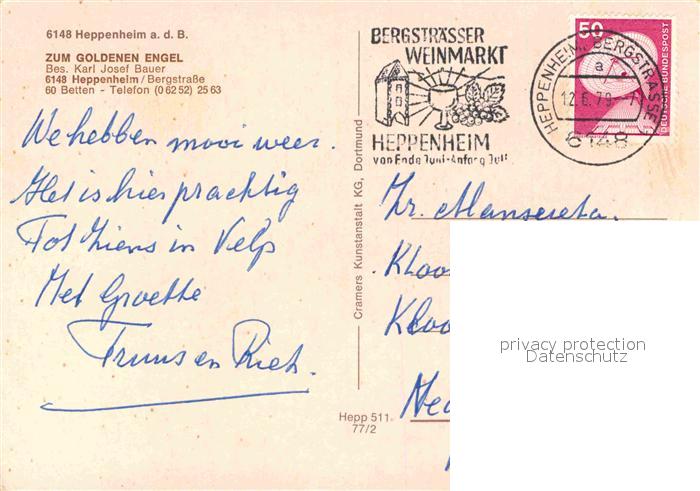 6148 Heppenheim a. d. B.
ZUM GOLDENEN ENGEL
Bes. Karl Josef Bauer
6148 Heppenheim/Bergstraße
60 Betten - Telefon (0 62 52) 25 63
We hebben mooi weer.
Het is hier prachtig
Tot Ziens in Velp
Met Groette
Truus en Riet.
Cramers Kunstanstalt KG, Dortmund
Hepp 511
77/2
BERGSTRÄSSER
WEINMARKT
HEPPENHEIM
von Ende Juni-Anfang Juli
HEPPENHEIM, BERGSTRASSE
a
12.6.79-7
6148
50
DEUTSCHE BUNDESPOST
Zr.
Kloo
Kloo
Ned
privacy protection
Datenschutz